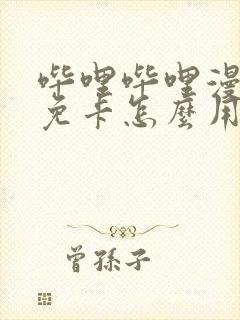 哔哩哔哩漫
免卡怎麼用
曾孫子